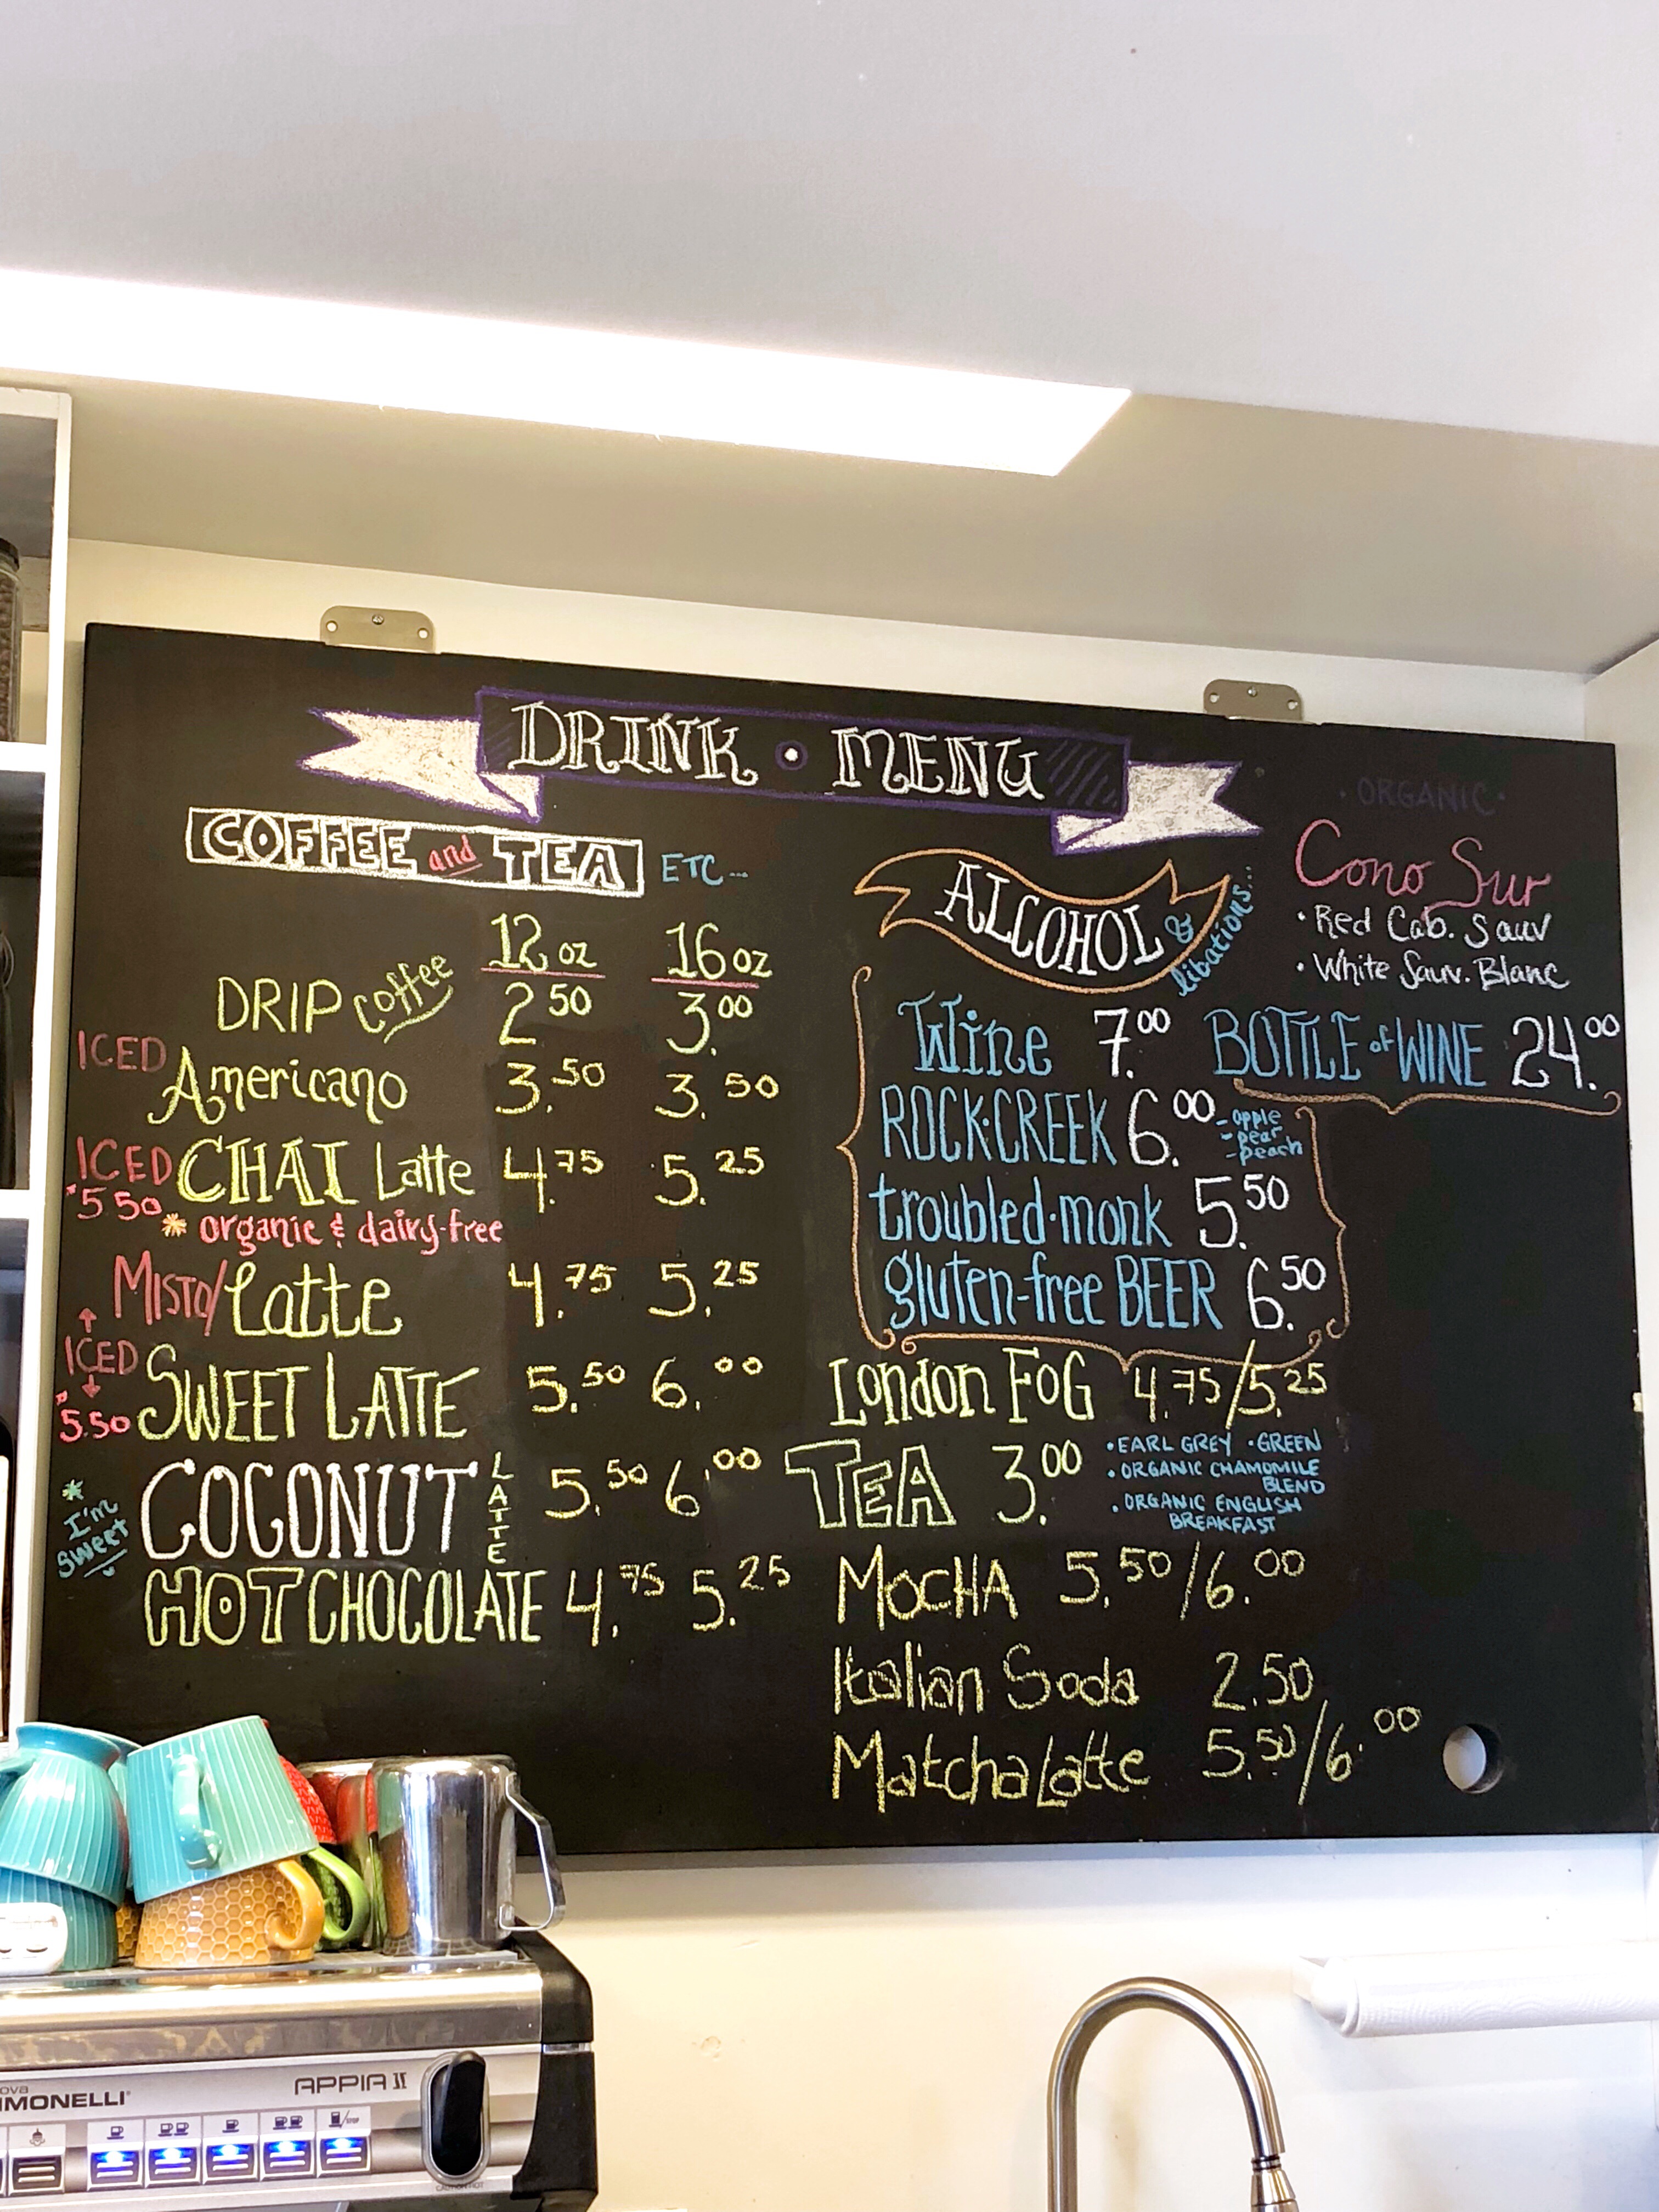 DRINK • MENU
COFFEE and TEA ETC...
12 oz 16 oz
DRIP coffee 2.50 3.00
ICED Americano 3.50 3.50
ICED CHAI Latte 4.75 5.25
5.50
* organic & dairy-free
MISTO/Latte 4.75 5.25
ICED
5.50
SWEET LATTE 5.50 6.00
* I'm sweet
COCONUT LATTE 5.50 6.00
HOT CHOCOLATE 4.75 5.25
ALCOHOL & libations...
• ORGANIC •
Cono Sur
• Red Cab. Sauv
• White Sauv. Blanc
Wine 7.00 BOTTLE of WINE 24.00
ROCK•CREEK 6.00
- apple
- pear
- peach
troubled•monk 5.50
gluten-free BEER 6.50
London FOG 4.75/5.25
TEA 3.00
• EARL GREY • GREEN
• ORGANIC CHAMOMILE
BLEND
• ORGANIC ENGLISH
BREAKFAST
MOCHA 5.50/6.00
Italian Soda 2.50
Matcha Latte 5.50/6.00
ova
IMONELLI
APPIA II